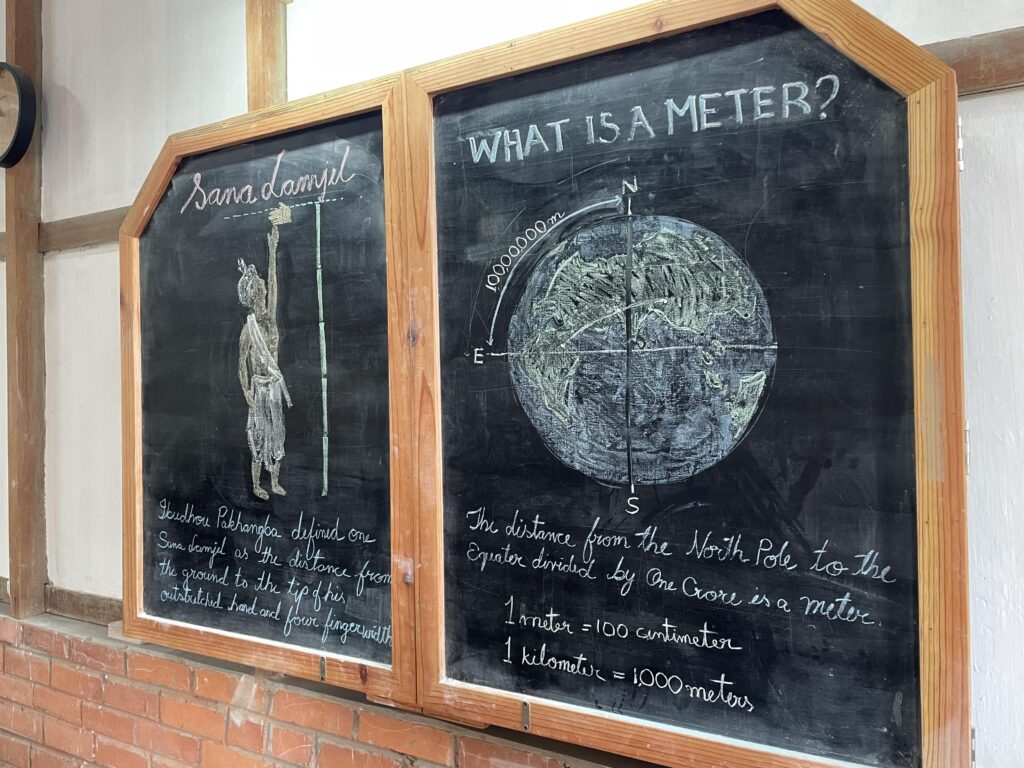 Sana Lamjel
Ibudhou Pakhangba defined one
Sana Lamjel as the distance from
the ground to the tip of his
outstretched hand and four finger width
WHAT IS A METER?
N
100,00000m
E
S
The distance from the North Pole to the
Equater divided by One Crore is a meter.
1 meter = 100 centimeter
1 kilometer = 1,000 meters